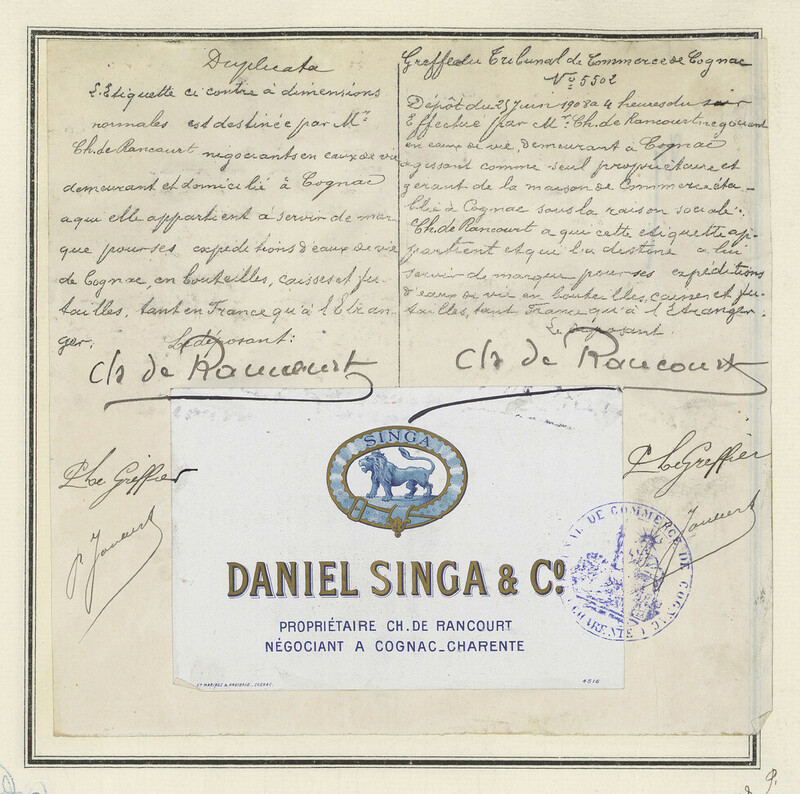 Duplicata
L'Etiquette ci contre à dimensions
normales est destinée par Mr
Ch. de Rancourt négociants en eaux de vie
demeurant et domicilié à Cognac
a qui elle appartient à servir de mar
que pour ses expéditions d'eaux de vie
de Cognac, en bouteilles, caisses et fu-
tailles, tant en France qu'à l'Etran-
ger.
Le déposant:
Ch de Rancourt
Pr le Greffier
Greffe du Tribunal de Commerce de Cognac
No 5502
Dépôt du 25 Juin 1908 à 4 heures du soir
Effectué par Mr Ch. de Rancourt négociant
en eaux de vie, demeurant à Cognac
agissant comme seul propriétaire et
gérant de la maison de Commerce éta-
blie à Cognac sous la raison sociale:
Ch. de Rancourt a qui cette etiquette ap-
partient et qui l'a destiné a lui
servir de marque pour ses expéditions
d'eaux de vie en bouteilles, caisses et fu-
tailles, tant France qu'à l'Etranger.
Le déposant
Ch de Rancourt
Pr le Greffier
SINGA
DANIEL SINGA & Co.
PROPRIÉTAIRE CH. DE RANCOURT
NÉGOCIANT A COGNAC_CHARENTE
COGNAC.
4516
TRIBUNAL DE COMMERCE DE COGNAC
(CHARENTE)